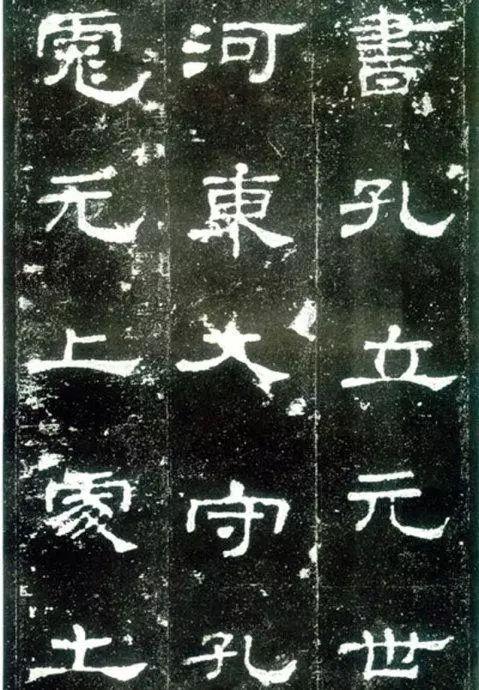 書孔立元世
河東大守孔
彪元上處士